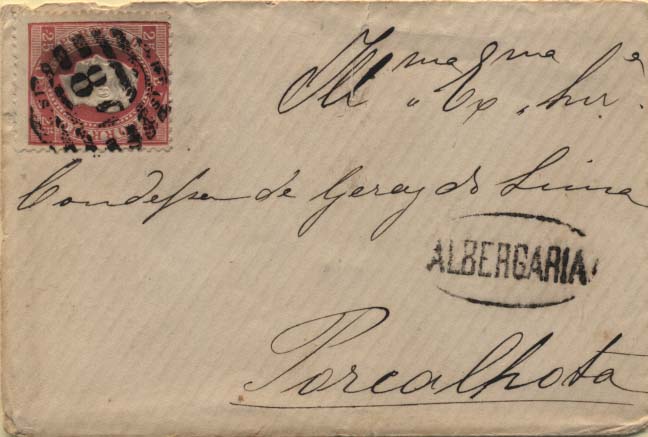 25
Illma e Exma Snra
Condessa de Geraz do Lima
ALBERGARIA
Porcalhota